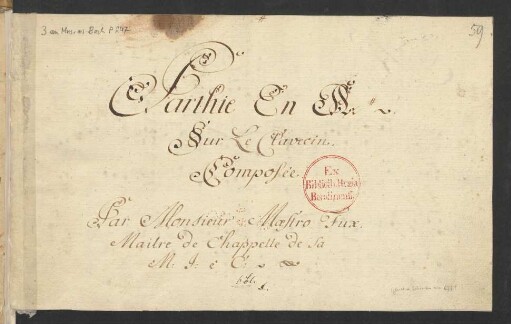 59
Parthie En
Sur Le Clavecin.
Composée
Ex
Biblioth. Regia
Berolinensi.
Par Monsieur Mæstro Fux.
Maitre de Chappelle de Sa
M: I: e C: